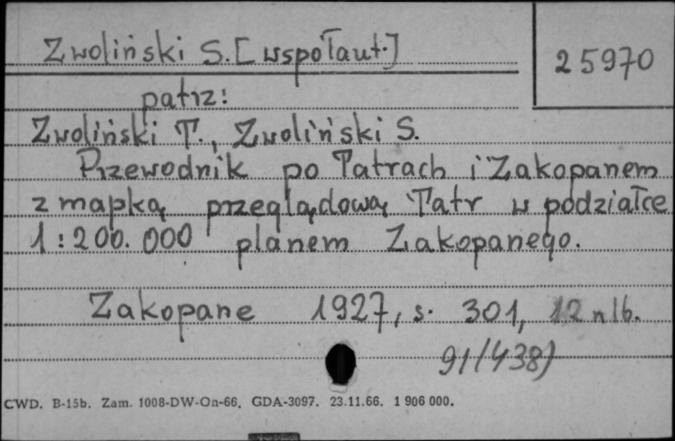 Zwoliński S. [współaut.]
25970
patrz:
Zwoliński T., Zwoliński S.
Przewodnik po Tatrach i Zakopanem
z mapką przeglądową Tatr w podziałce
1:200.000 planem Zakopanego.
Zakopane 1927, s. 301, 12 nlb.
91/438)
CWD. B-15b. Zam. 1008-DW-On-66. GDA-3097. 23.11.66. 1 906 000.